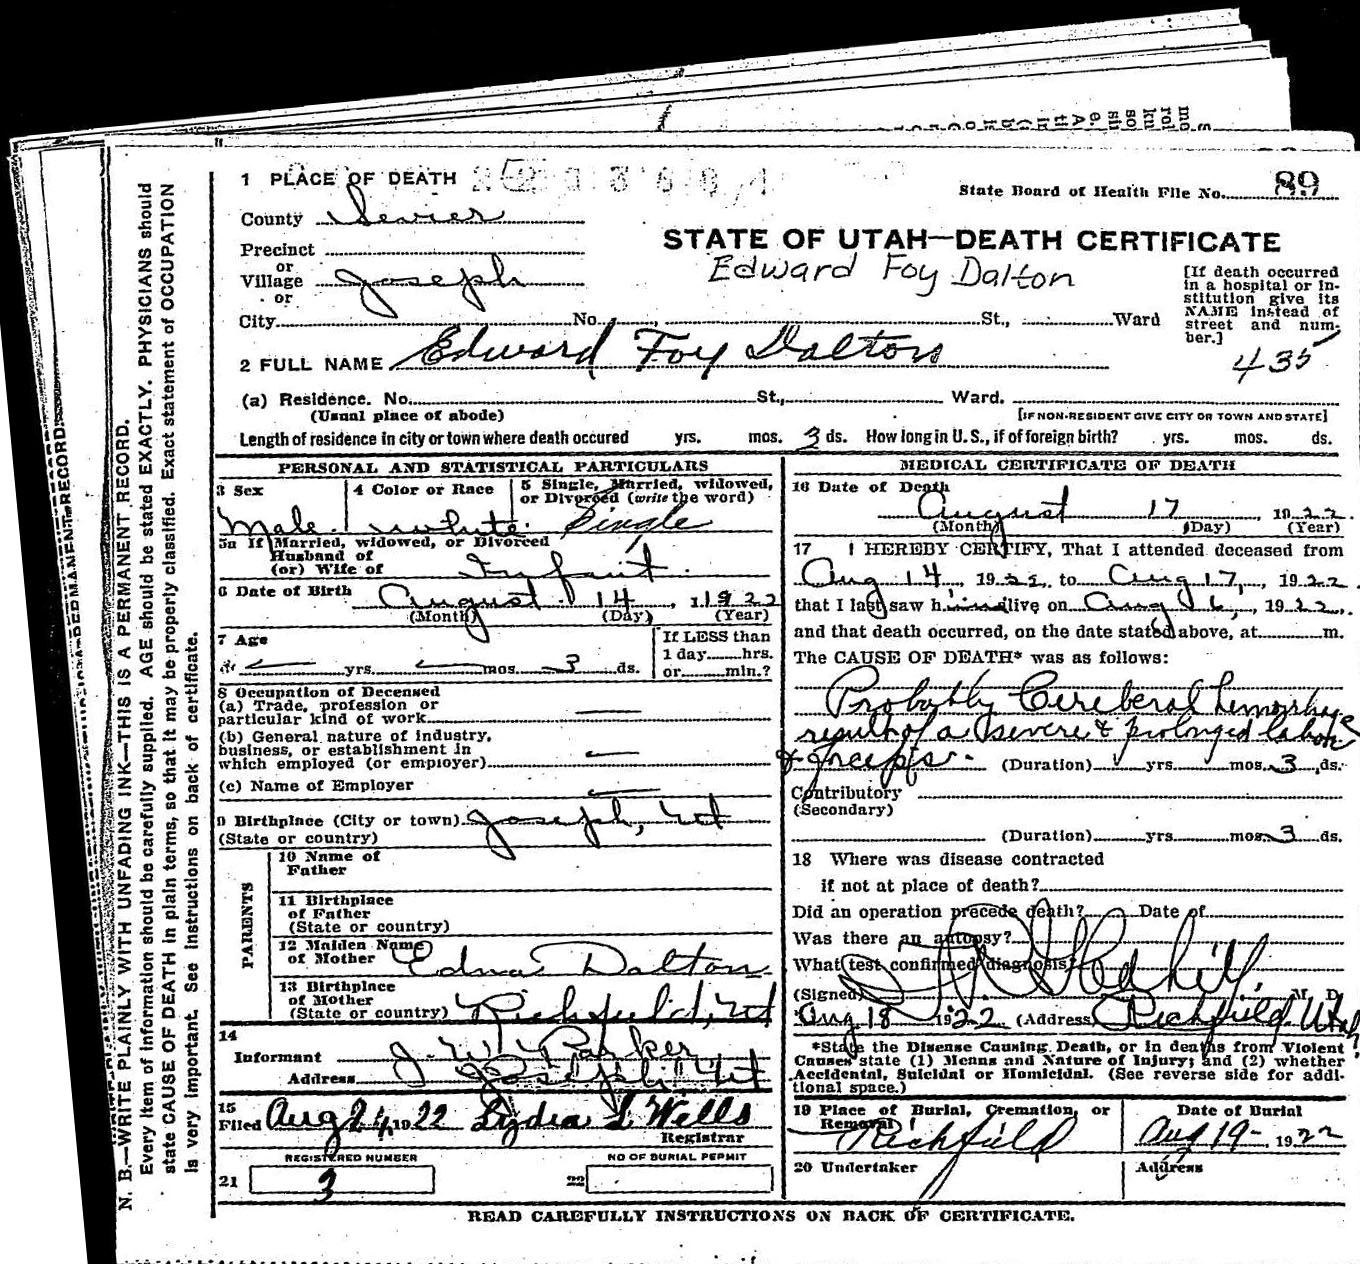 1 PLACE OF DEATH
State Board of Health File No. 89
County Sevier
STATE OF UTAH—DEATH CERTIFICATE
Precinct
or
Edward Foy Dalton
Village Joseph
or
[If death occurred
in a hospital or in-
stitution give its
NAME instead of
street and num-
ber.]
City No. St., Ward
435
2 FULL NAME Edward Foy Dalton
(a) Residence. No. St., Ward.
(Usual place of abode) [IF NON-RESIDENT GIVE CITY OR TOWN AND STATE]
Length of residence in city or town where death occured yrs. mos. 3 ds. How long in U. S., if of foreign birth? yrs. mos. ds.
PERSONAL AND STATISTICAL PARTICULARS
3 Sex Male
4 Color or Race white
5 Single, Married, widowed,
or Divorced (write the word)
Single
5a If Married, widowed, or Divorced
Husband of
(or) Wife of Infant
6 Date of Birth August 14, 1922
(Month) (Day) (Year)
7 Age
yrs. mos. 3 ds.
If LESS than
1 day hrs.
or min.?
8 Occupation of Deceased
(a) Trade, profession or
particular kind of work
(b) General nature of industry,
business, or establishment in
which employed (or employer)
(c) Name of Employer
9 Birthplace (City or town) Joseph, Ut
(State or country)
PARENTS
10 Name of
Father
11 Birthplace
of Father
(State or country)
12 Maiden Name
of Mother Edna Dalton
13 Birthplace
of Mother
(State or country) Richfield, Ut
14
Informant J. W. Parker
Address Joseph Ut
15
Filed Aug 24, 1922 Lydia S Wells
Registrar
REGISTERED NUMBER
21 3
NO OF BURIAL PERMIT
22
MEDICAL CERTIFICATE OF DEATH
16 Date of Death
August 17, 1922
(Month) (Day) (Year)
17 I HEREBY CERTIFY, That I attended deceased from
Aug 14, 1922, to Aug 17, 1922
that I last saw him alive on Aug 16, 1922.
and that death occurred, on the date stated above, at m.
The CAUSE OF DEATH* was as follows:
Probably Cereberal hemorhage
result of a severe & prolonged labor
& forceps. (Duration) yrs. mos. 3 ds.
Contributory
(Secondary)
(Duration) yrs. mos. 3 ds.
18 Where was disease contracted
if not at place of death?
Did an operation precede death? Date of
Was there an autopsy?
What test confirmed diagnosis?
(Signed) M. D.
Aug 18 1922 (Address) Richfield Utah
*State the Disease Causing Death, or in deaths from Violent
Causes state (1) Means and Nature of Injury; and (2) whether
Accidental, Suicidal or Homicidal. (See reverse side for addi-
tional space.)
19 Place of Burial, Cremation, or
Removal
Richfield
Date of Burial
Aug 19 1922
20 Undertaker
Address
READ CAREFULLY INSTRUCTIONS ON BACK OF CERTIFICATE.
N. B.—WRITE PLAINLY WITH UNFADING INK—THIS IS A PERMANENT RECORD.
Every item of information should be carefully supplied. AGE should be stated EXACTLY. PHYSICIANS should
state CAUSE OF DEATH in plain terms, so that it may be properly classified. Exact statement of OCCUPATION
is very important. See instructions on back of certificate.